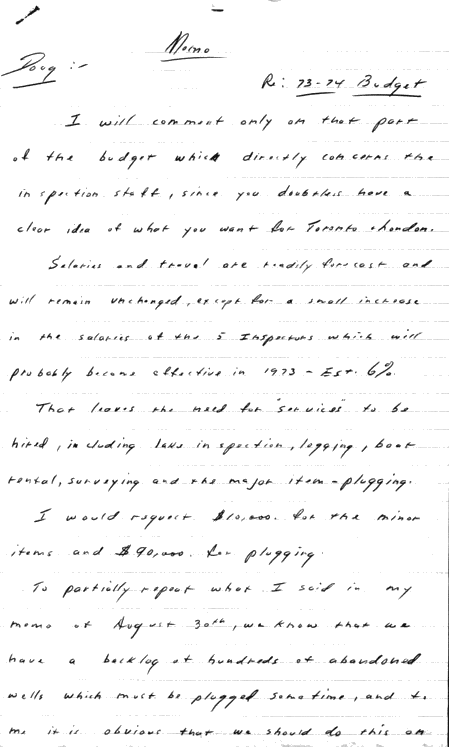 Memo
Doug :-
Re: 73-74 Budget
I will comment only on that part
of the budget which directly concerns the
inspection staff, since you doubtless have a
clear idea of what you want for Toronto & London.
Salaries and travel are readily forecast and
will remain unchanged, except for a small increase
in the salaries of the 5 Inspectors which will
probably become effective in 1973 - Est. 6%.
That leaves the need for "services" to be
hired, including lake inspection, logging, boat
rental, surveying and the major item - plugging.
I would request $10,000. for the minor
items and $90,000. for plugging.
To partially repeat what I said in my
memo of August 30th, we know that we
have a backlog of hundreds of abandoned
wells which must be plugged sometime, and to
me it is obvious that we should do this on